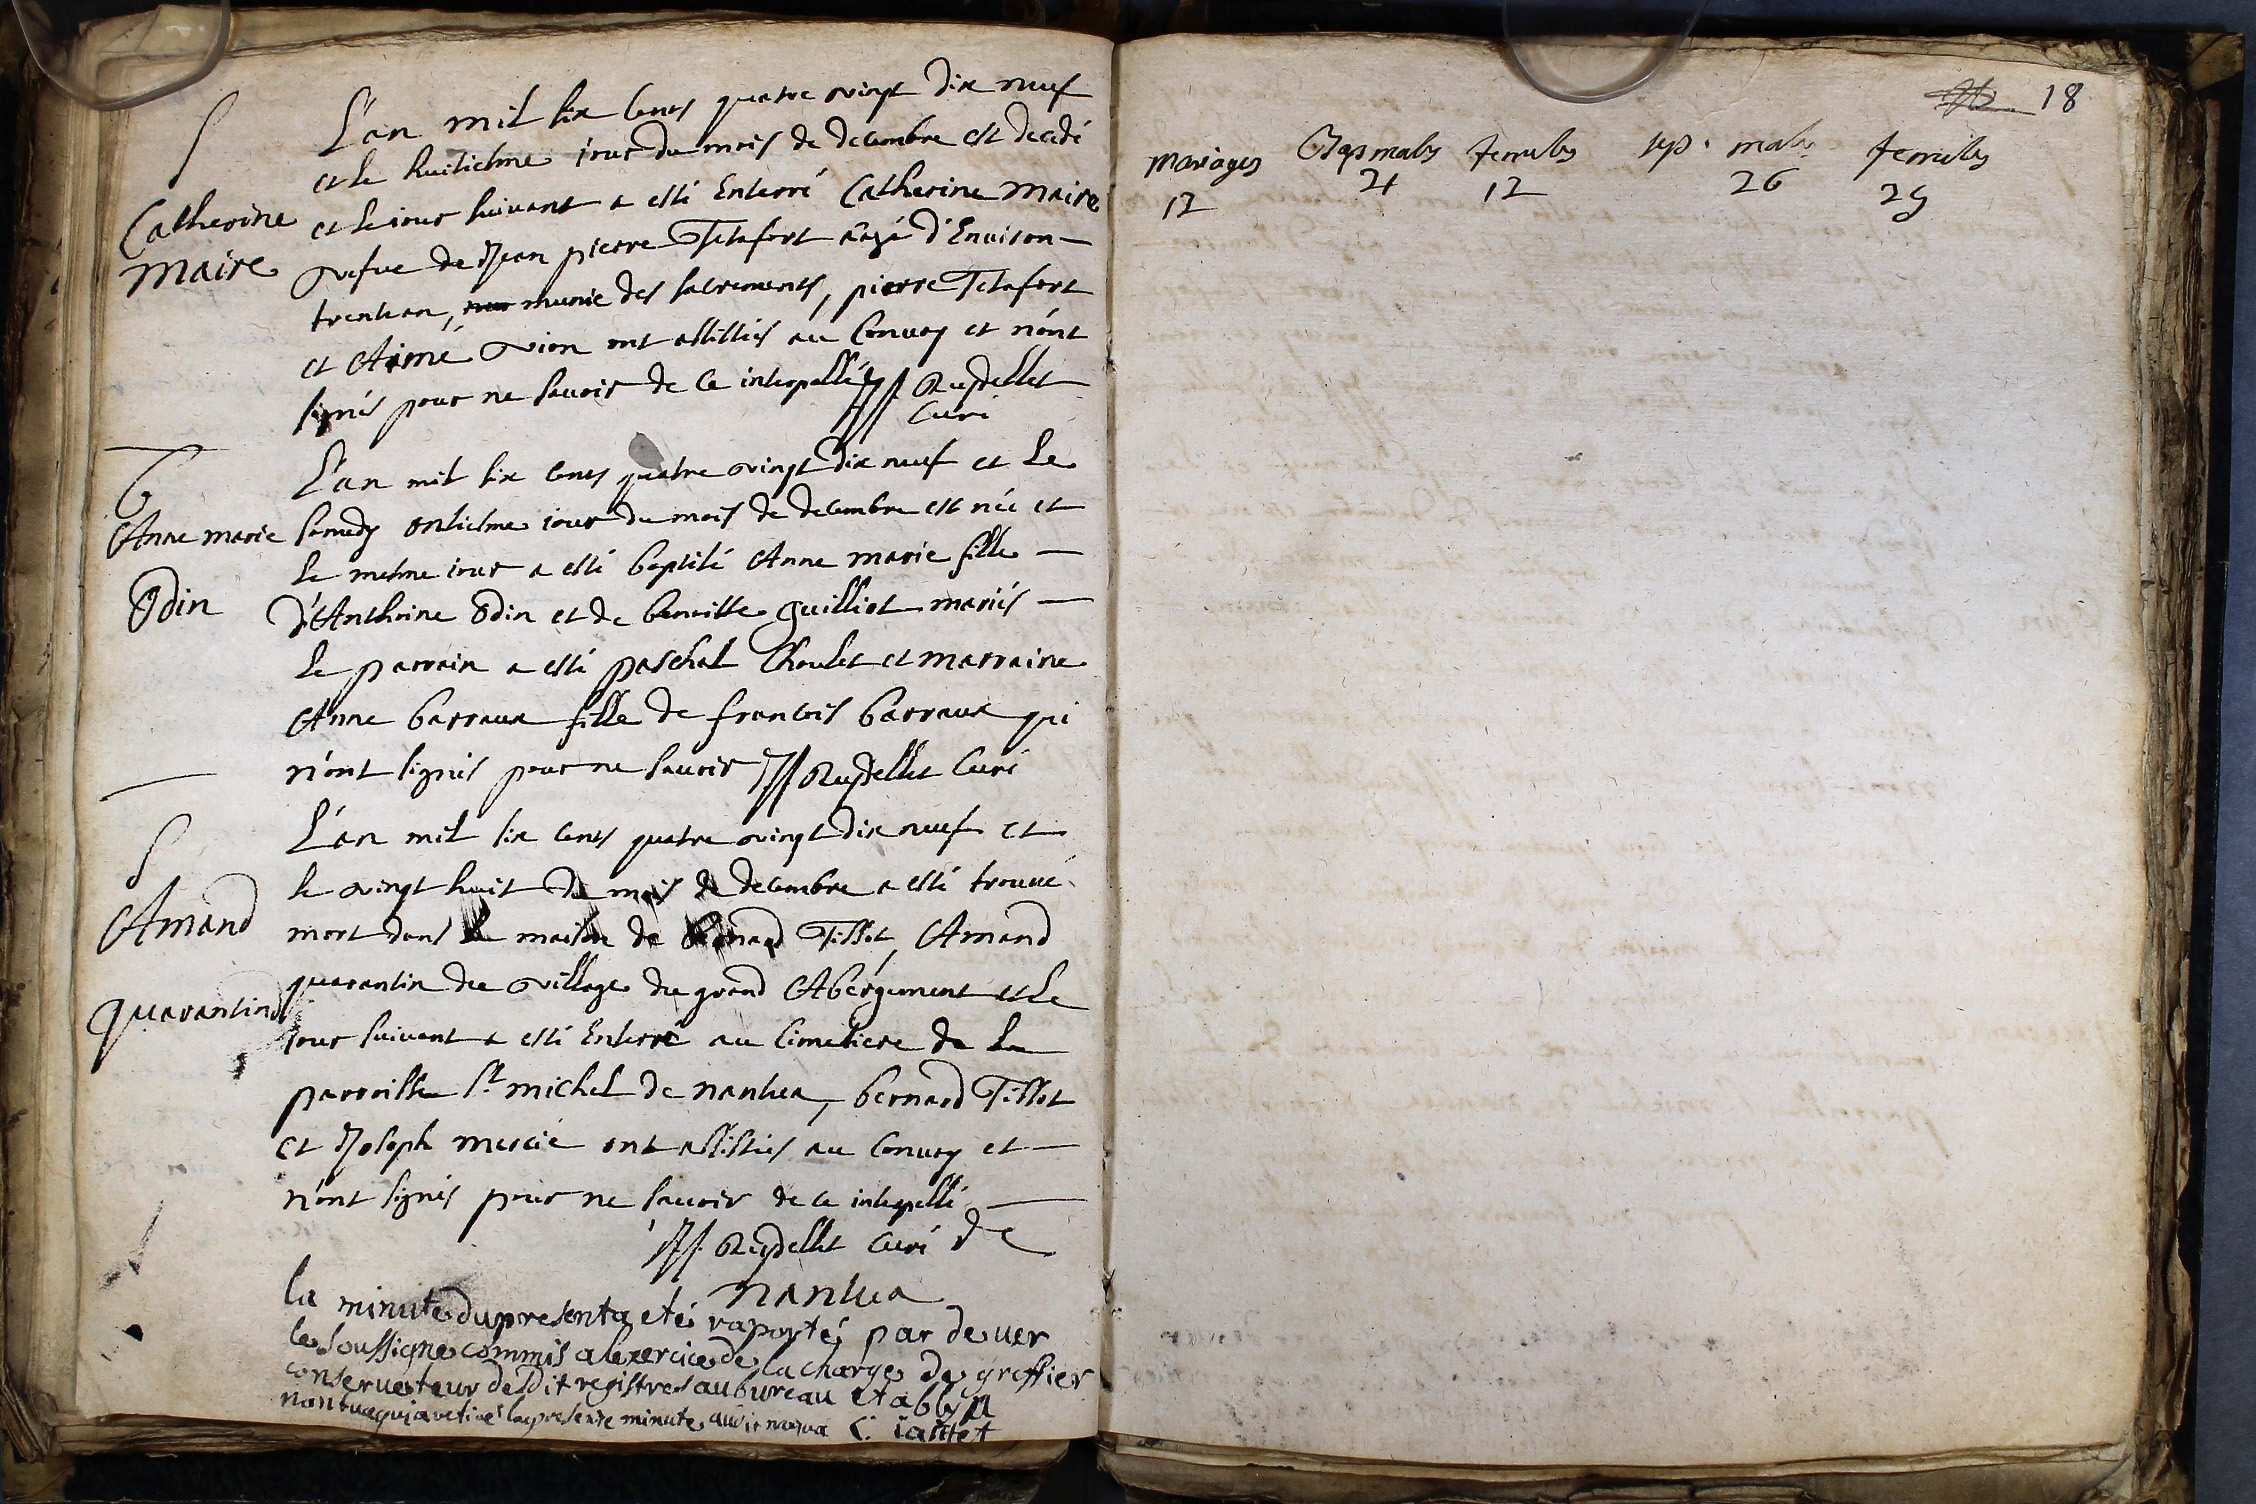 S
Catherine
maire
L'an mil six cents quatre vingt dix neuf
et le huitiesme jour du mois de decembre est decedé
et le jour suivant a esté Enterré Catherine maire
vefve de Jean pierre Tetafort aagé d'Environ
trente an, munie des sacrements, pierre Tetafort
et Aimé vion ont assistés au Convoy et n'ont
signés pour ne sçavoir de ce interpellés Reydellet
Curé
B
Anne marie
Odin
L'an mil six cents quatre vingt dix neuf et Le
samedy onziesme jour du mois de decembre est née et
le mesme jour a esté baptisé Anne marie fille
d'Anthoine Odin et de benoitte guilliot mariés
Le parrain a esté paschal Choulet et marraine
Anne barraux fille de francois barraux qui
n'ont signés pour ne sçavoir Reydellet Curé
S
Amand
quarantin
L'an mil six cents quatre vingt dix neuf et
le vingt huit du mois de decembre a esté trouvé
mort dans la maison de bernard Tissot, Amand
quarantin du village du grand Abérgement et Le
jour suivant a esté Enterré au Cimetiere de La
parroisse St michel de nantua, bernard Tissot
et Joseph mercié ont assistés au Convoy et
n'ont signés pour ne sçavoir de ce interpellé
Reydellet Curé de
nantua
la minute du present a eté raporté par dever
le soussigne commis a lexercice de la charge de greffier
conservateur desdit registres au bureau etably a
nantua qui a retiré la presente minute audit nantua
18
mariages Bap males femelles sep. males femelles
12 21 12 26 25